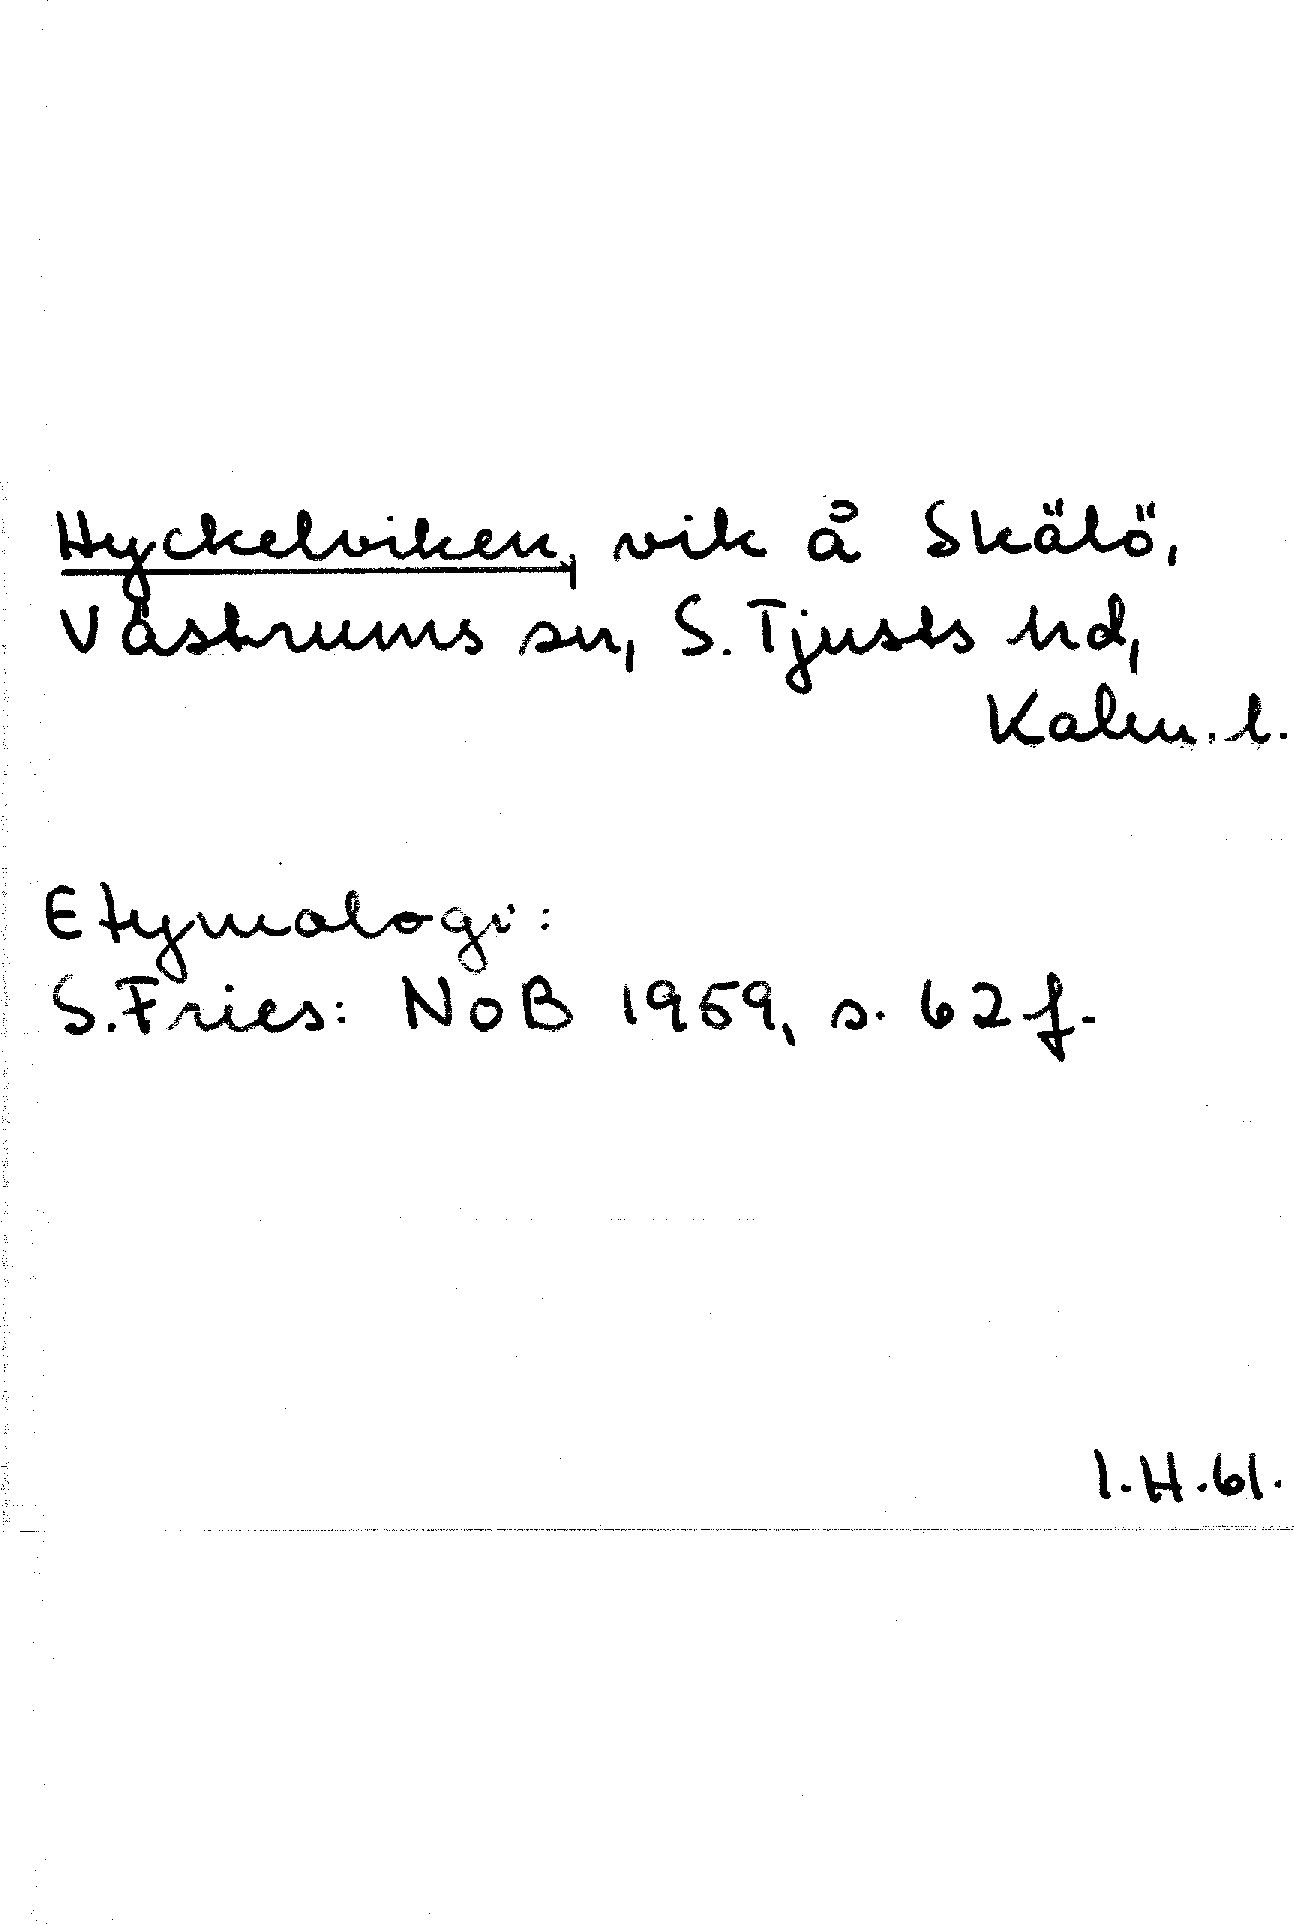 Hyckelviken, vik å Skälö,
Västrums sn, S. Tjusts hd,
Kalm. l.
Etymologi:
S. Fries: NoB 1959, s. 62 f.
I.H.61.